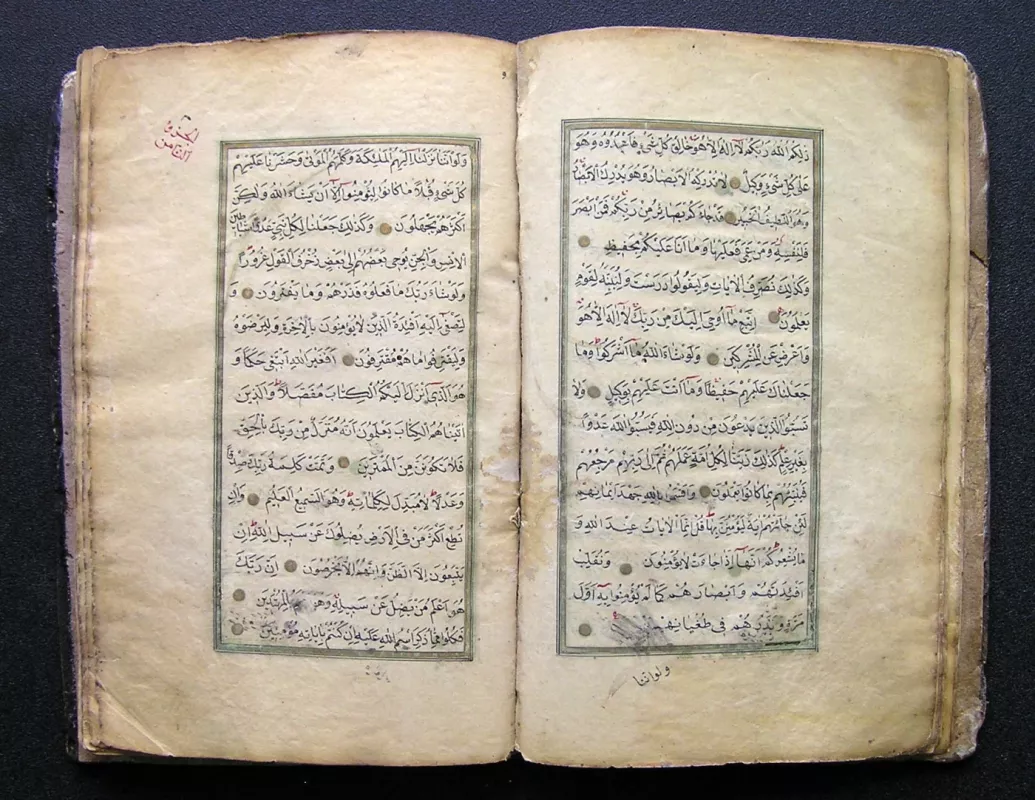 ذلكم الله ربكم لا اله الا هو خالق كل شيء فاعبدوه وهو
على كل شيء وكيل لا تدركه الابصار وهو يدرك الابصار
وهو اللطيف الخبير قد جاءكم بصائر من ربكم فمن ابصر
فلنفسه ومن عمي فعليها وما انا عليكم بحفيظ
وكذلك نصرف الايات وليقولوا درست ولنبينه لقوم
يعلمون اتبع ما اوحي اليك من ربك لا اله الا هو
واعرض عن المشركين ولو شاء الله ما اشركوا وما
جعلناك عليهم حفيظا وما انت عليهم بوكيل ولا
تسبوا الذين يدعون من دون الله فيسبوا الله عدوا
بغير علم كذلك زينا لكل امة عملهم ثم الى ربهم مرجعهم
فينبئهم بما كانوا يعملون واقسموا بالله جهد ايمانهم
لئن جاءتهم اية ليؤمنن بها قل انما الايات عند الله و
ما يشعركم انها اذا جاءت لا يؤمنون ونقلب
افئدتهم وابصارهم كما لم يؤمنوا به اول
مرة ونذرهم في طغيانهم
ولو اننا
الجزء
الثامن
ولو اننا نزلنا اليهم الملئكة وكلمهم الموتى وحشرنا عليهم
كل شيء قبلا ما كانوا ليؤمنوا الا ان يشاء الله ولكن
اكثرهم يجهلون وكذلك جعلنا لكل نبي عدوا شياطين
الانس والجن يوحي بعضهم الى بعض زخرف القول غرورا
ولو شاء ربك ما فعلوه فذرهم وما يفترون و
لتصغى اليه افئدة الذين لا يؤمنون بالاخرة وليرضوه
وليقترفوا ما هم مقترفون افغير الله ابتغي حكما و
هو الذي انزل اليكم الكتاب مفصلا والذين
اتيناهم الكتاب يعلمون انه منزل من ربك بالحق
فلا تكونن من الممترين وتمت كلمة ربك صدقا
وعدلا لا مبدل لكلماته وهو السميع العليم وان
تطع اكثر من في الارض يضلوك عن سبيل الله ان
يتبعون الا الظن وان هم الا يخرصون ان ربك
هو اعلم من يضل عن سبيله وهو اعلم بالمهتدين
فكلوا مما ذكر اسم الله عليه ان كنتم باياته مؤمنين